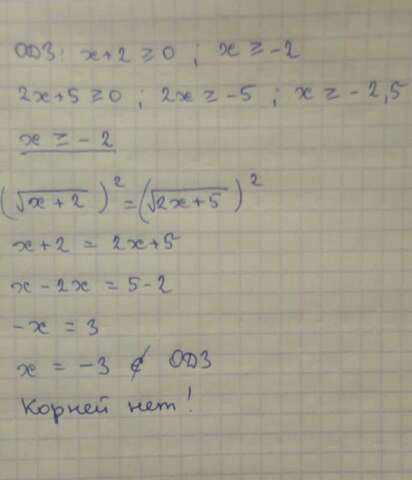 ОДЗ: x+2 ≥ 0 ; x ≥ -2
2x+5 ≥ 0 ; 2x ≥ -5 ; x ≥ -2,5
x ≥ -2
(√x+2)² = (√2x+5)²
x+2 = 2x+5
x - 2x = 5-2
-x = 3
x = -3 ∉ ОДЗ
Корней нет!